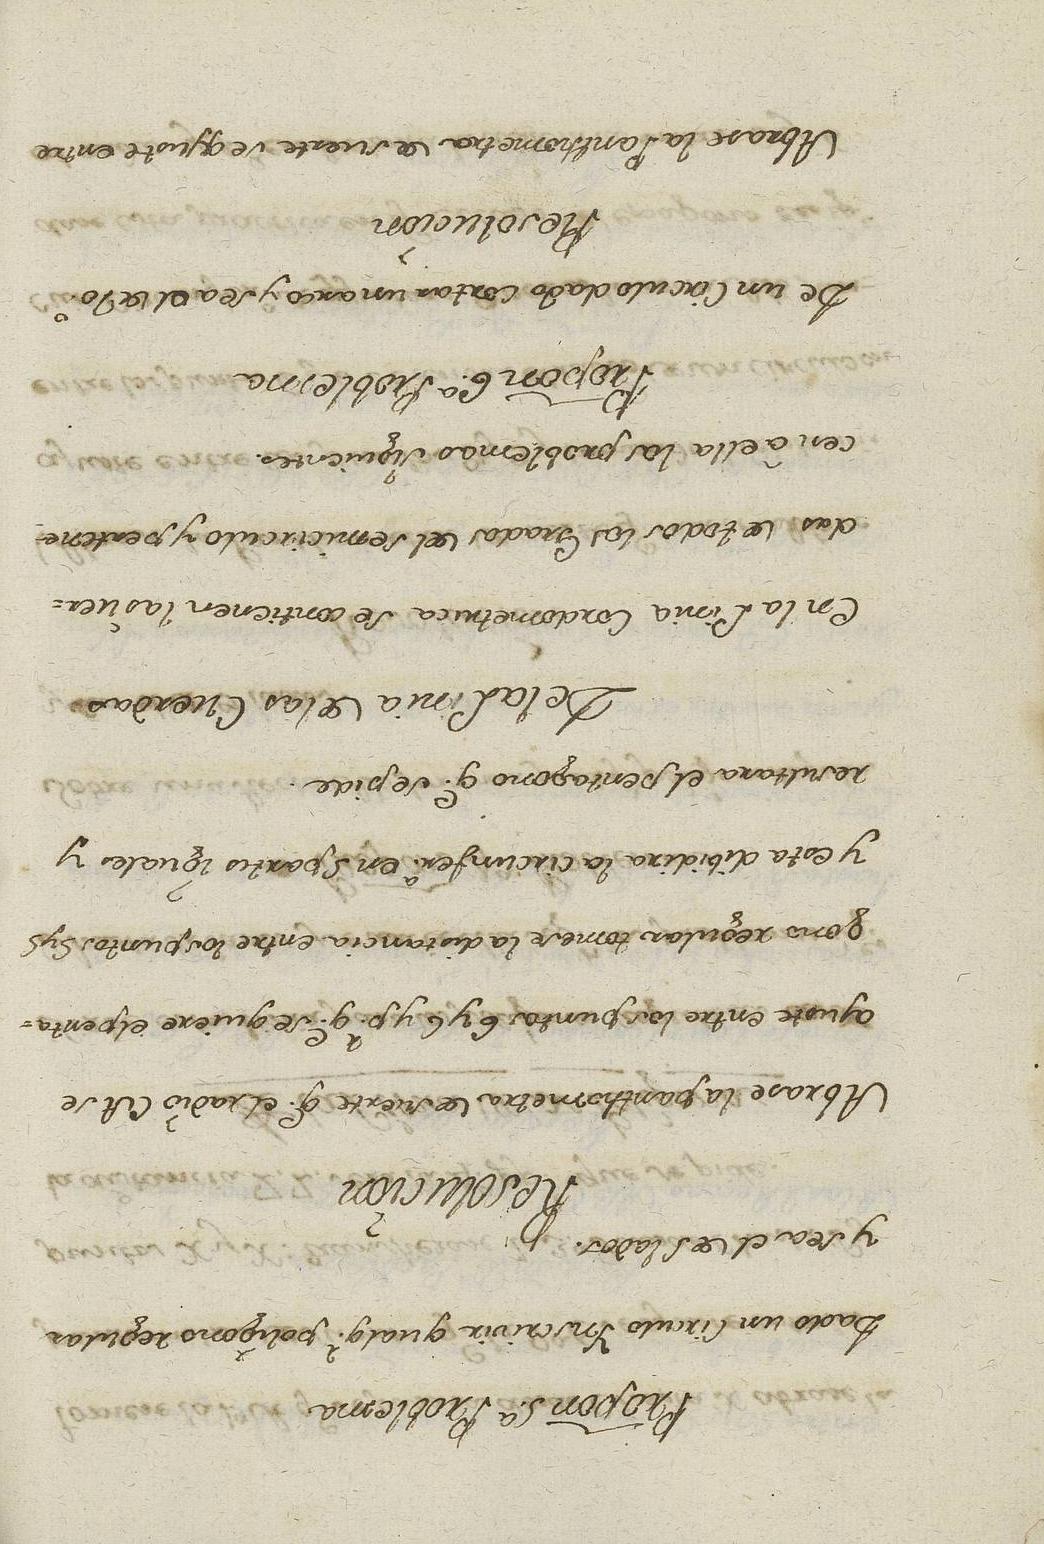 Propon 5.ª Problema
Dado un Circulo Ynscrivir qualq.r poligono regular
y sea el de 5 lados.
Resolucion
Abrase la panthometra de suerte q.e el radio CA se
ajuste entre los puntos 6 y 6 y p.r q.e se quiere el penta=
gono regular tomese la distancia entre los puntos 5 y 5
y esta dibidira la circunfer.ª en 5 partes iguales y
resultara el pentagono q.e se pide.
De la Linia de las Cuerdas
En la Linia Cordometrica se contienen las cuer=
das de todos los Grados del semicirculo y pertene-
cen à ella los problemas siguientes.
Propon 6.ª Problema
De un Circulo dado Cortar un arco y sea el de 70.º
Resolucion
Abrase la Panthometra de suerte se ajuste entre